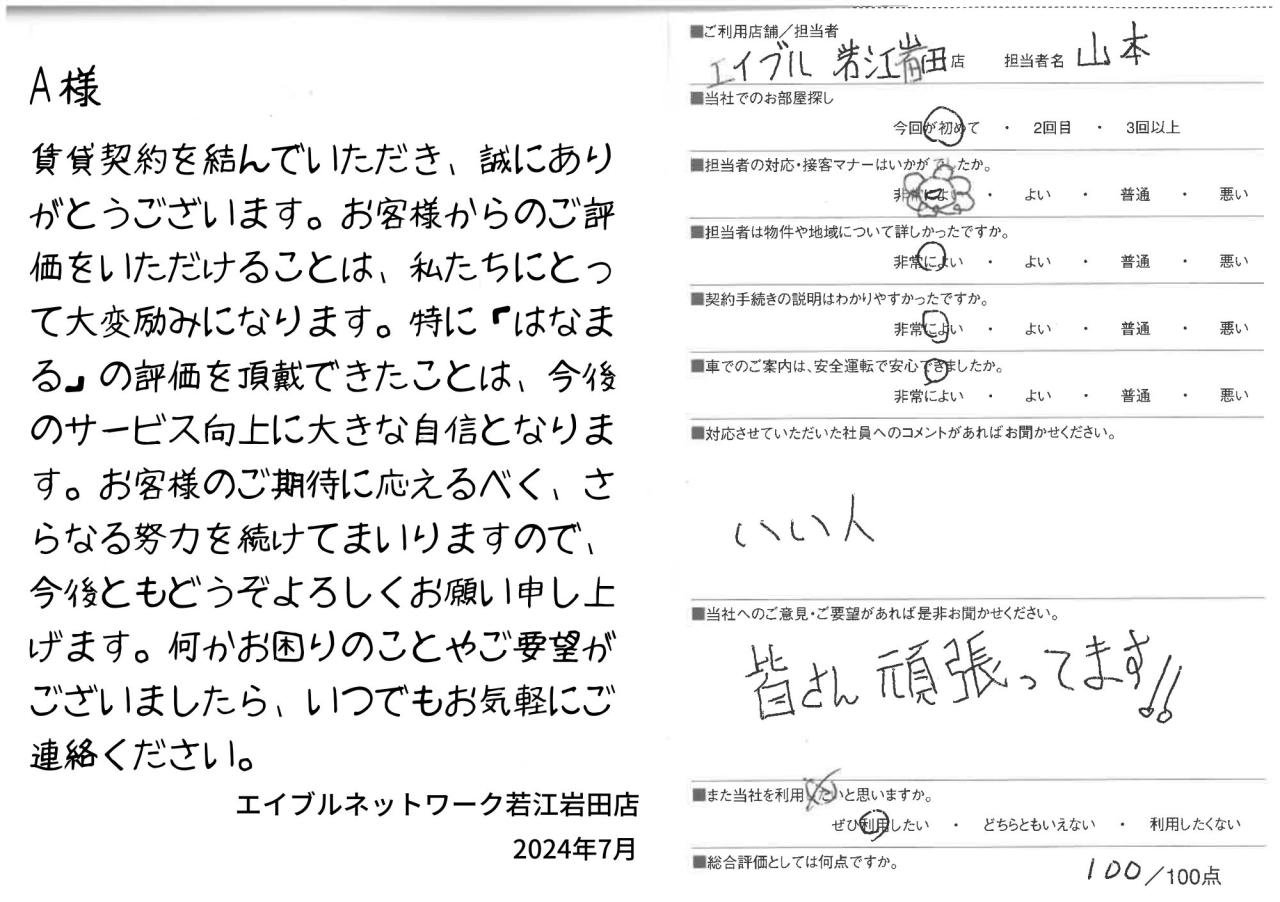 A様
賃貸契約を結んでいただき、誠にあり
がとうございます。お客様からのご評
価をいただけることは、私たちにとっ
て大変励みになります。特に『はなま
る』の評価を頂戴できたことは、今後
のサービス向上に大きな自信となりま
す。お客様のご期待に応えるべく、さ
らなる努力を続けてまいりますので、
今後ともどうぞよろしくお願い申し上
げます。何かお困りのことやご要望が
ございましたら、いつでもお気軽にご
連絡ください。
エイブルネットワーク若江岩田店
2024年7月
■ご利用店舗／担当者
エイブル 若江岩田店 担当者名 山本
■当社でのお部屋探し
今回が初めて ・ 2回目 ・ 3回以上
■担当者の対応・接客マナーはいかがでしたか。
非常によい ・ よい ・ 普通 ・ 悪い
■担当者は物件や地域について詳しかったですか。
非常によい ・ よい ・ 普通 ・ 悪い
■契約手続きの説明はわかりやすかったですか。
非常によい ・ よい ・ 普通 ・ 悪い
■車でのご案内は、安全運転で安心できましたか。
非常によい ・ よい ・ 普通 ・ 悪い
■対応させていただいた社員へのコメントがあればお聞かせください。
いい人
■当社へのご意見・ご要望があれば是非お聞かせください。
皆さん頑張ってます!!
■また当社を利用したいと思いますか。
ぜひ利用したい ・ どちらともいえない ・ 利用したくない
■総合評価としては何点ですか。
100/100点